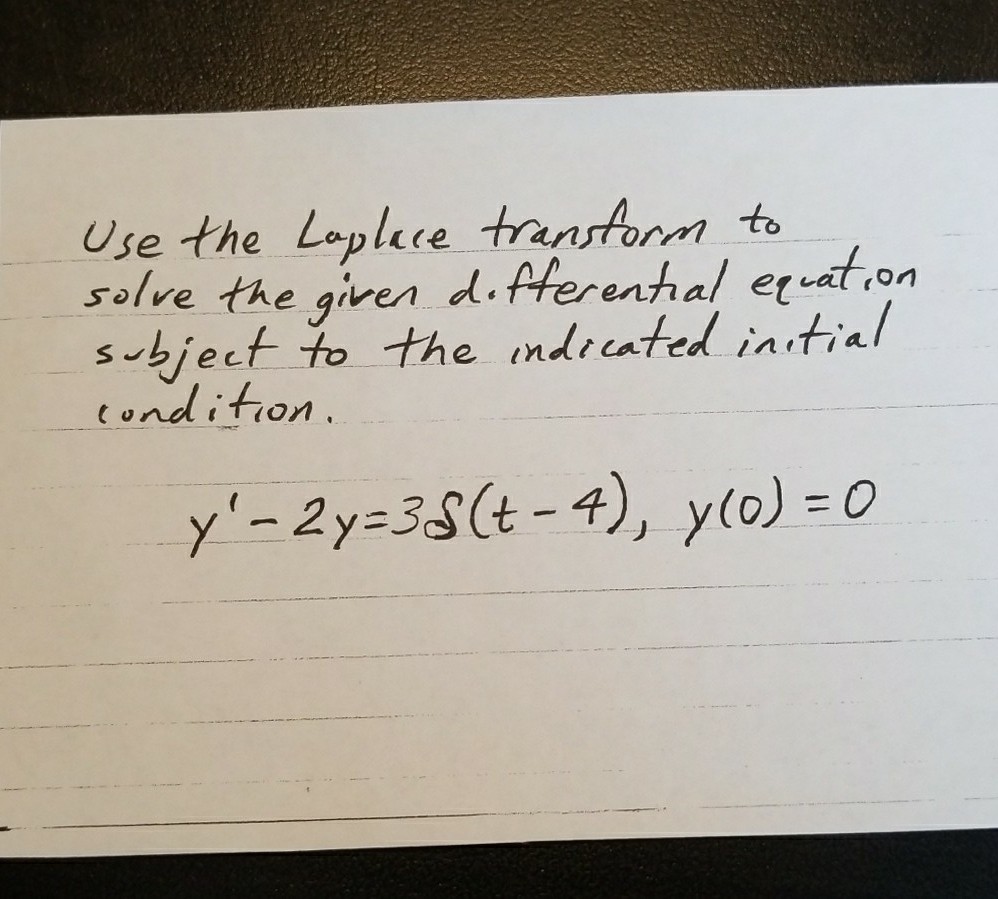 Use the Laplace transform to
solve the given differential equation
subject to the indicated initial
condition.
y' - 2y = 3δ(t - 4), y(0) = 0